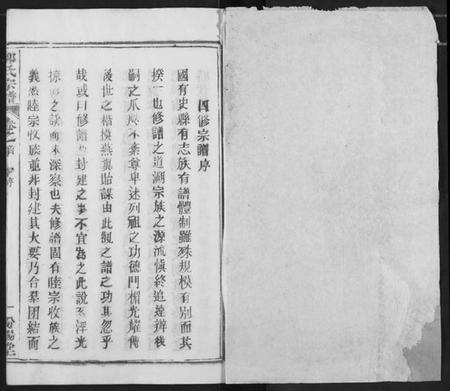 四修宗譜序
國有史縣有志族有譜體制雖殊規模有別而其
揆一也修譜之道溯宗族之源流慎終追遠辨後
嗣之瓜 不紊尊卑述列祖之功德門楣光耀傳
後世之楷模燕翼貽謀由此觀之譜之功其忽乎
哉或曰修譜 封建之事不宜為之此說 浮光
掠 之說而未深察也夫修譜固有睦宗收族之
義然睦宗收族並非封建其大要乃合羣團結而
氏宗譜